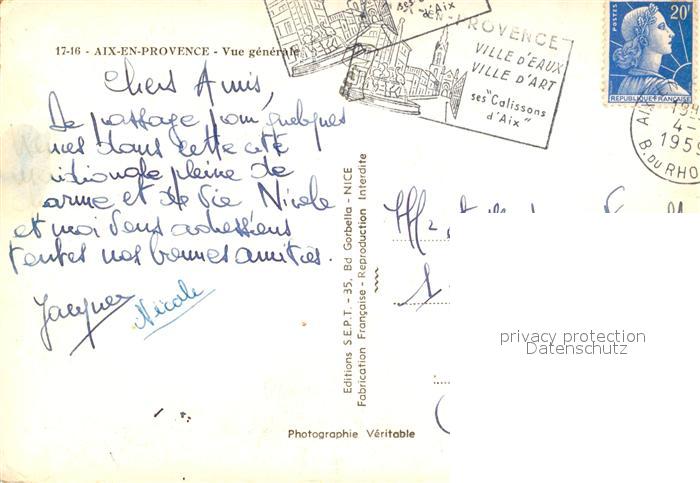 17-16 - AIX-EN-PROVENCE - Vue générale
Chers Amis,
De passage pour quelques
dans cette cité
pleine de
et de vie Nicole
et moi vous adressons
toutes nos bonnes amitiés.
Jacques
Nicole
Editions S.E.P.T. - 35, Bd Gorbella - NICE
Fabrication Française - Reproduction Interdite
Photographie Véritable
d'Aix"
EN-PROVENCE
VILLE D'EAUX
VILLE D'ART
ses "Calissons
d'Aix"
POSTES
20F
REPUBLIQUE FRANÇAISE
AIX
4-
1959
B. DU RHO
privacy protection
Datenschutz